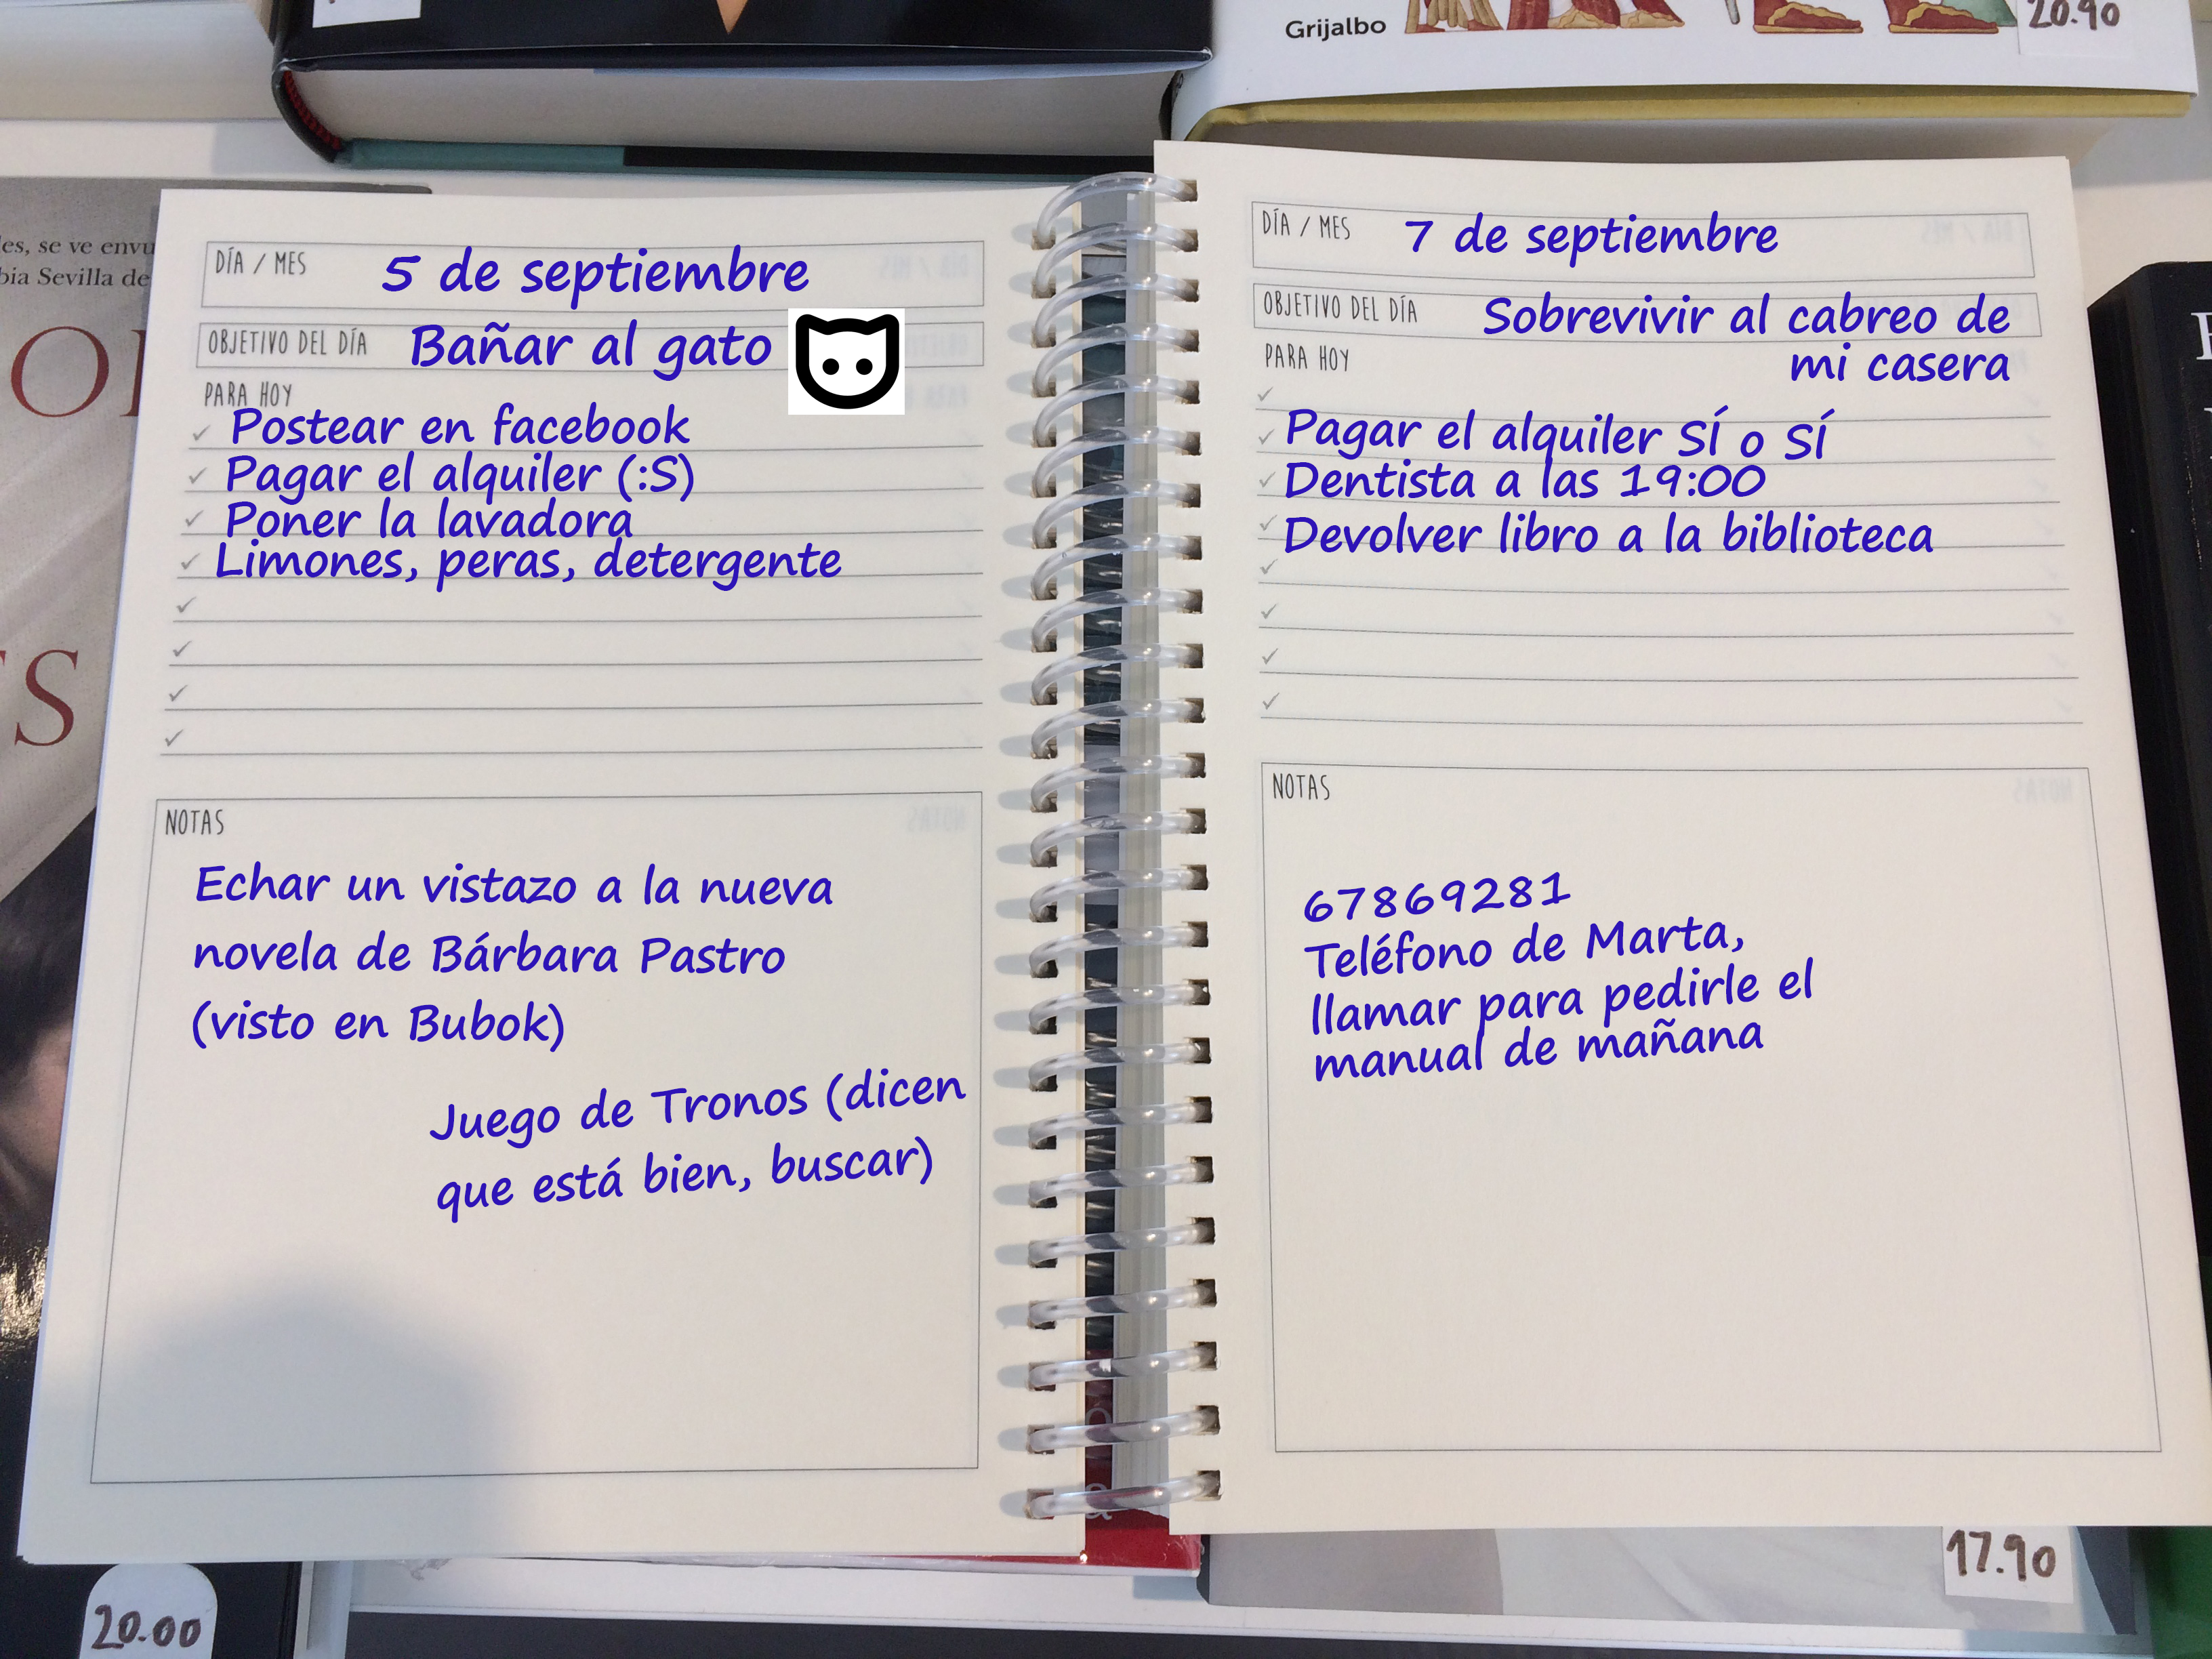 Grijalbo
20.90
es, se ve envu
bia Sevilla de
DÍA / MES 5 de septiembre
OBJETIVO DEL DÍA Bañar al gato
PARA HOY
Postear en facebook
Pagar el alquiler (:S)
Poner la lavadora
Limones, peras, detergente
NOTAS
Echar un vistazo a la nueva
novela de Bárbara Pastro
(visto en Bubok)
Juego de Tronos (dicen
que está bien, buscar)
DÍA / MES 7 de septiembre
OBJETIVO DEL DÍA Sobrevivir al cabreo de
mi casera
PARA HOY
Pagar el alquiler SÍ o SÍ
Dentista a las 19:00
Devolver libro a la biblioteca
NOTAS
67869281
Teléfono de Marta,
llamar para pedirle el
manual de mañana
20.00
17.90